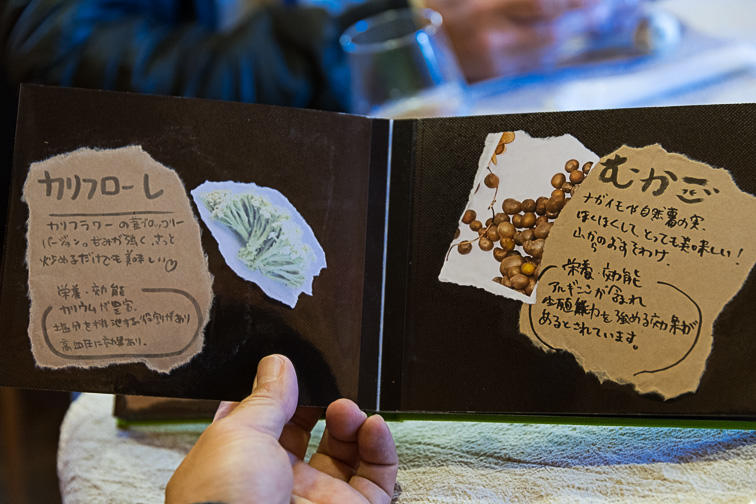 カリフローレ
カリフラワーの茎ブロッコリー
バージョン。甘みが強く、さっと
炒めるだけでも美味しい♡
栄養・効能
カリウムが豊富。
塩分を排泄する役割があり
高血圧に効果あり。
むかご
ナガイモや自然薯の実。
ほくほくして、とっても美味しい!
山からのおすそわけ。
栄養・効能
アルギニンが含まれ
生殖能力を強める効果が
あるとされています。